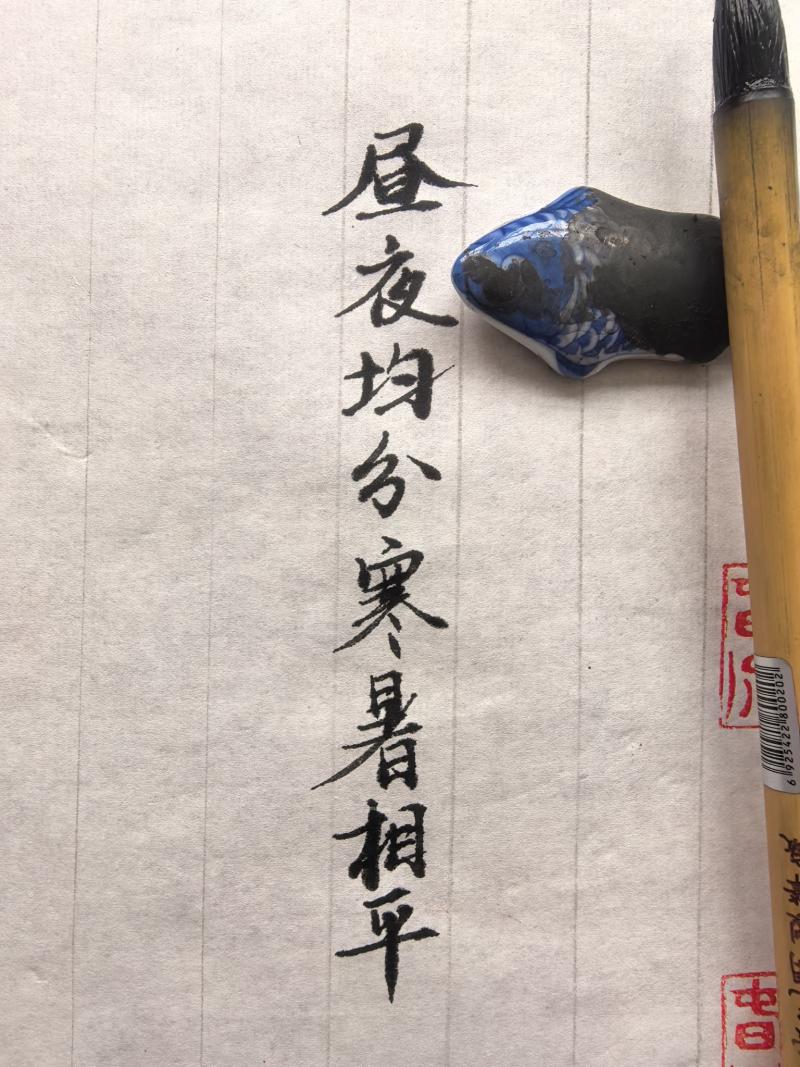 昼夜均分寒暑相平
6925422800202